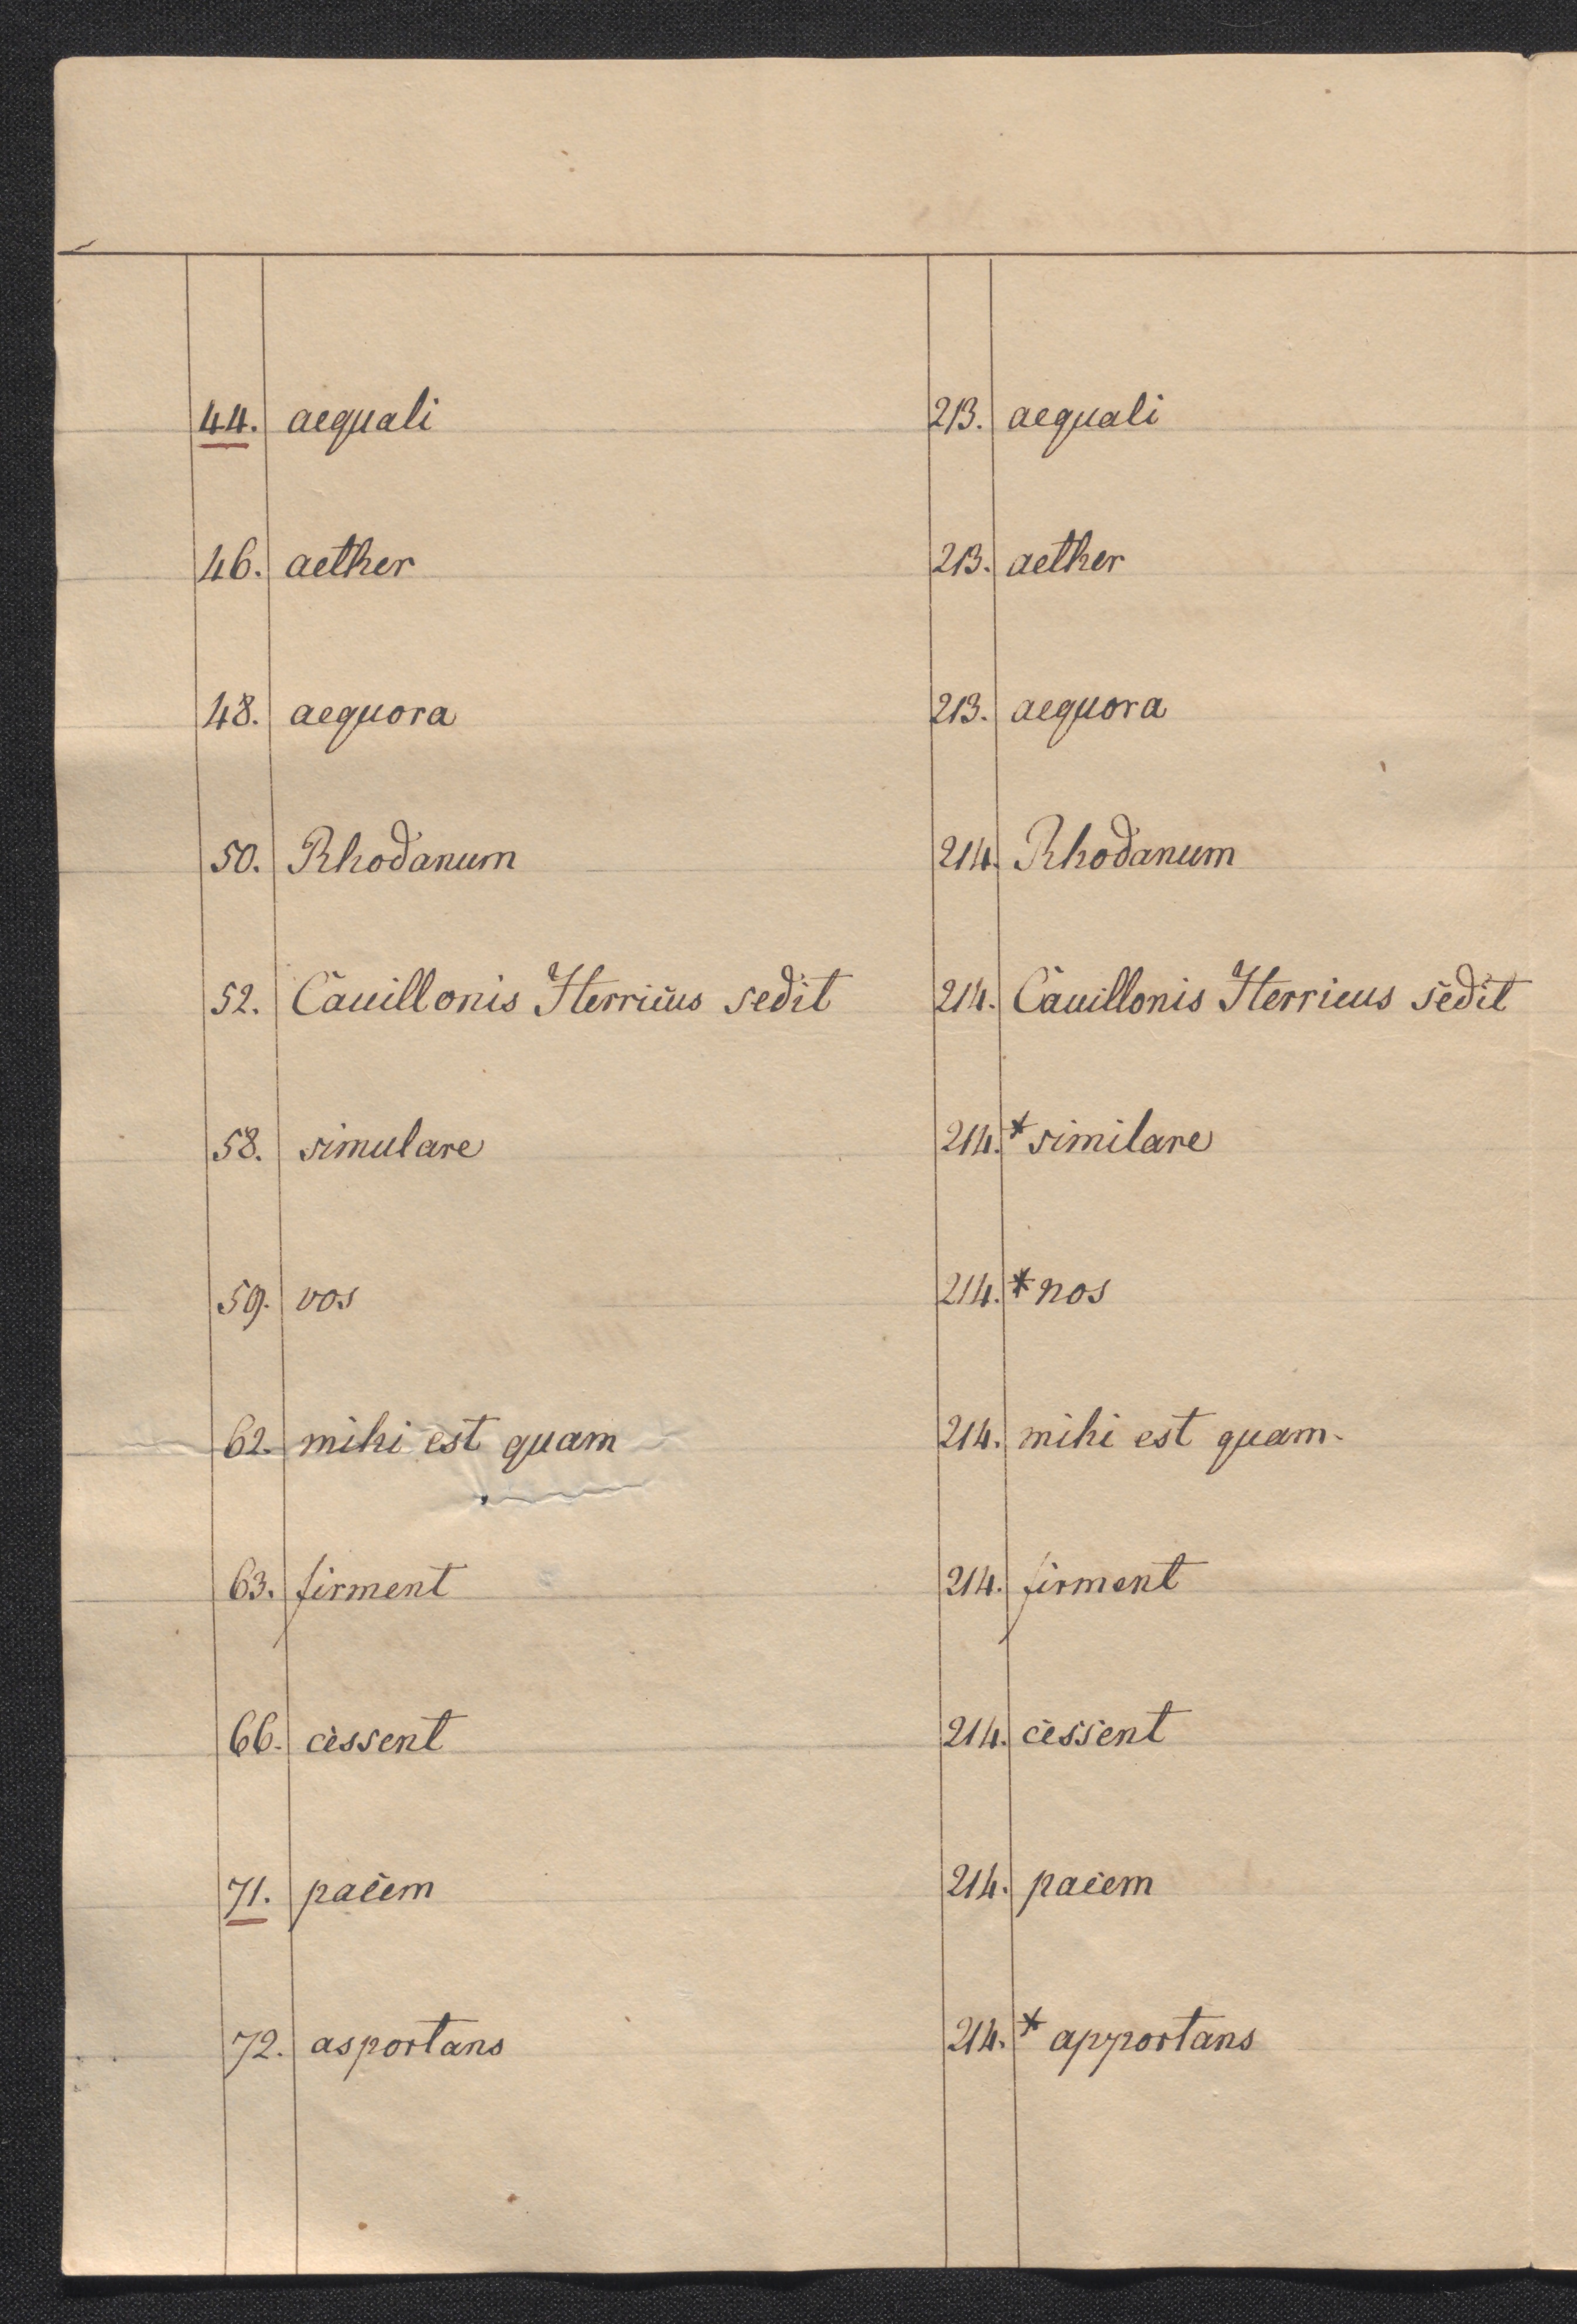 44. aequali 213. aequali
46. aether 213. aether
48. aequora 213. aequora
50. Rhodanum 214. Rhodanum
52. Cauillonis Herricus sedit 214. Cauillonis Herricus sedit
58. simulare 214. *similare
59. vos 214. *nos
62. mihi est quam 214. mihi est quam.
63. firment 214. firment
66. cessent 214. cessent
71. pacem 214. pacem
72. asportans 214. *apportans